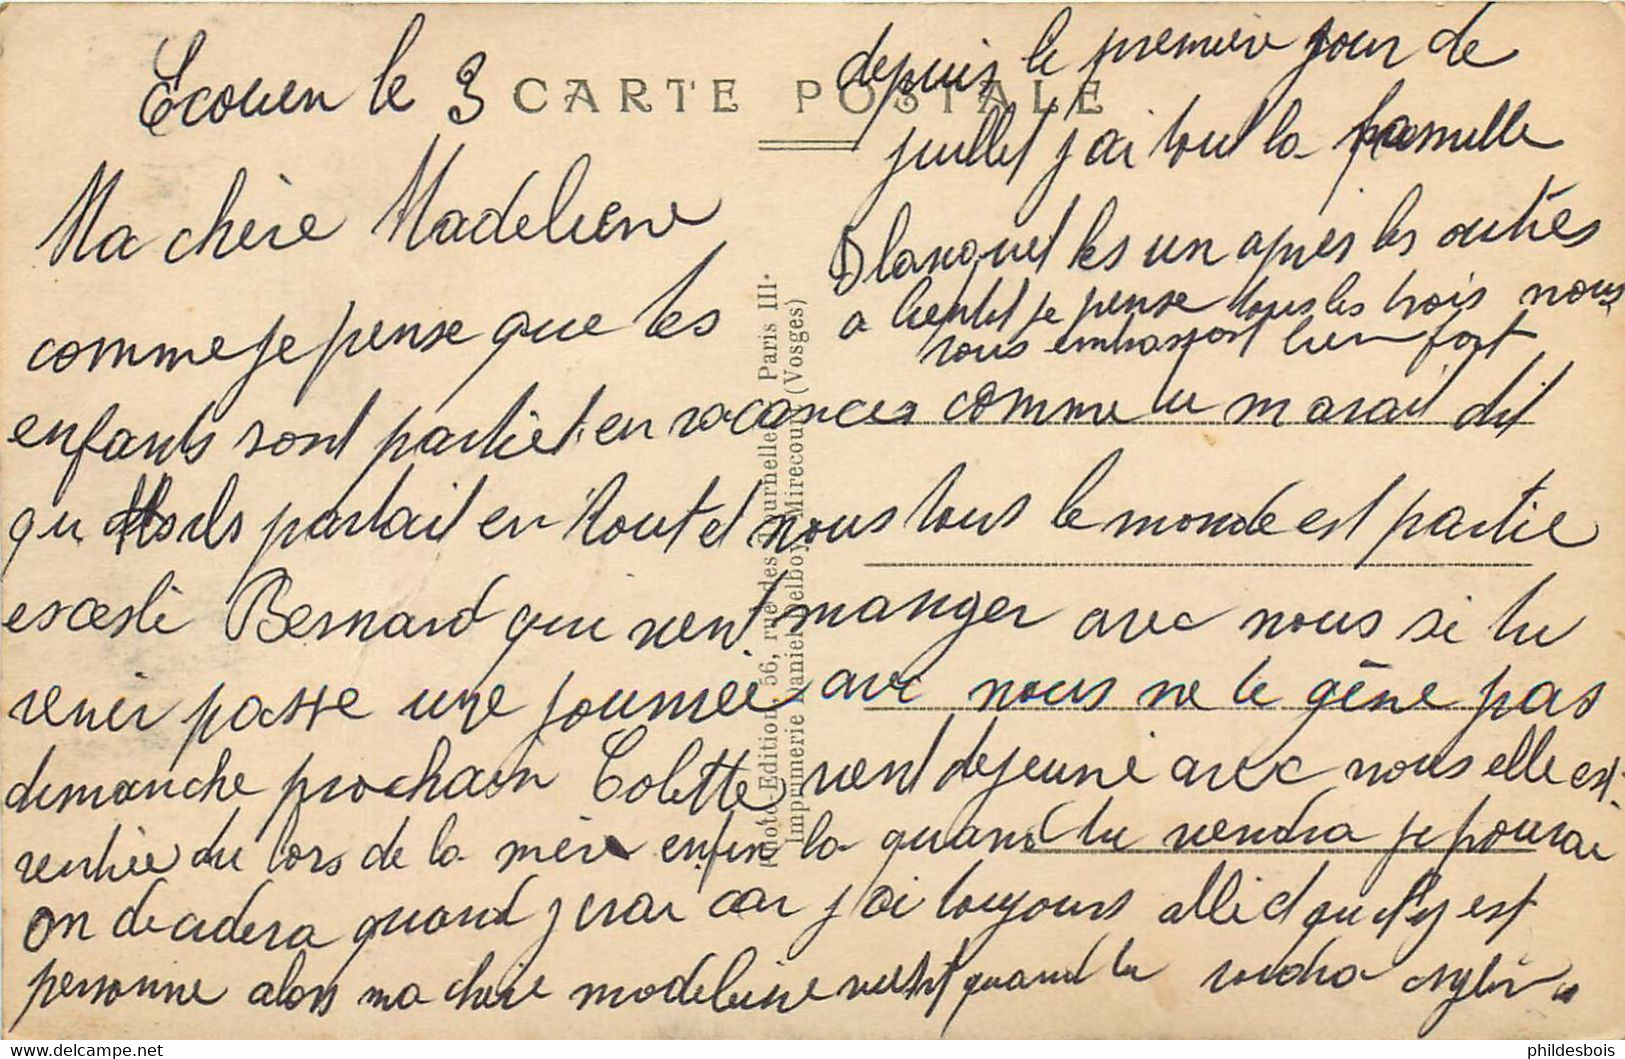 Ecouen le 3
CARTE POSTALE
Ma chère Madeleine
comme je pense que les
enfants sont partiet en vacances comme tu m avait dit
qu ils partait en tout et nous tous le monde est partie
Bernard qui vient manger avec nous si tu
venir passe une journee avec nous ne te gêne pas
dimanche prochain Colette vient dejeuné avec nous elle est
rentrée du lors de la mère enfin la quand tu viendra je pourai
on decidera quand j irai car j ai toujours qu il y est
personne alors ma chère madeleine vient quand tu voudra
depuis le premier jour de
juillet j ai tout la famille
Blanquet les un apres les autres
a bientot je pense tous les trois nous
vous embrasson bien fort
Photo-Edition, 56, rue des Tournelles, Paris III·
Imprimerie Daniel Delboy, Mirecourt (Vosges)
phildesbois